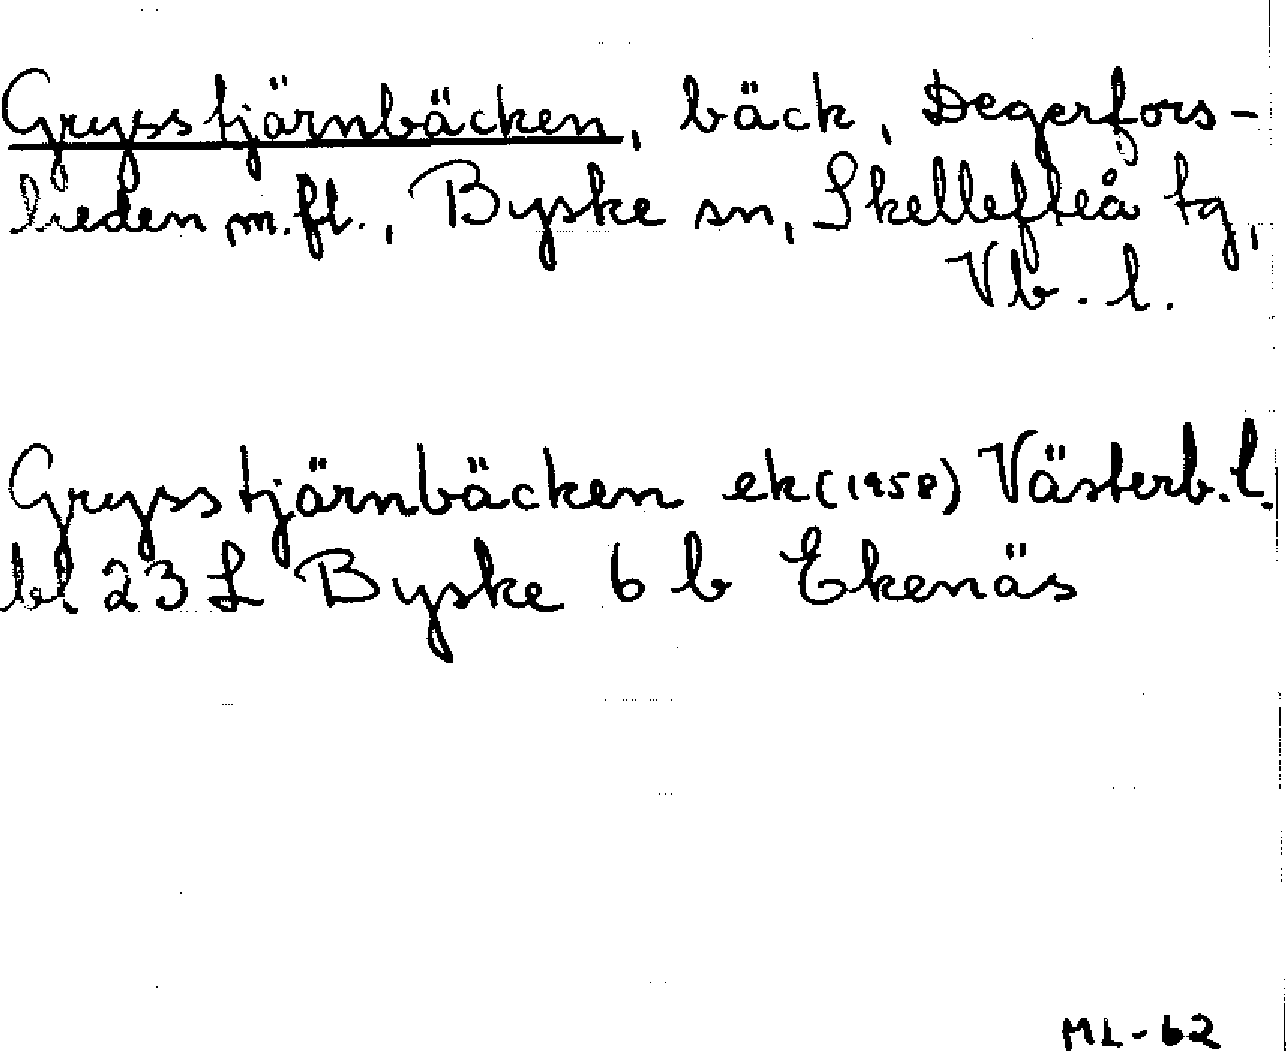 Grysstjärnbäcken, bäck, Degerfors-
lieden m.fl., Byske sn, Skellefteå tg,
Vb. l.
Grysstjärnbäcken ek (1958) Västerb. l.
bl 23 L Byske 6 b Ekenäs
ML-62